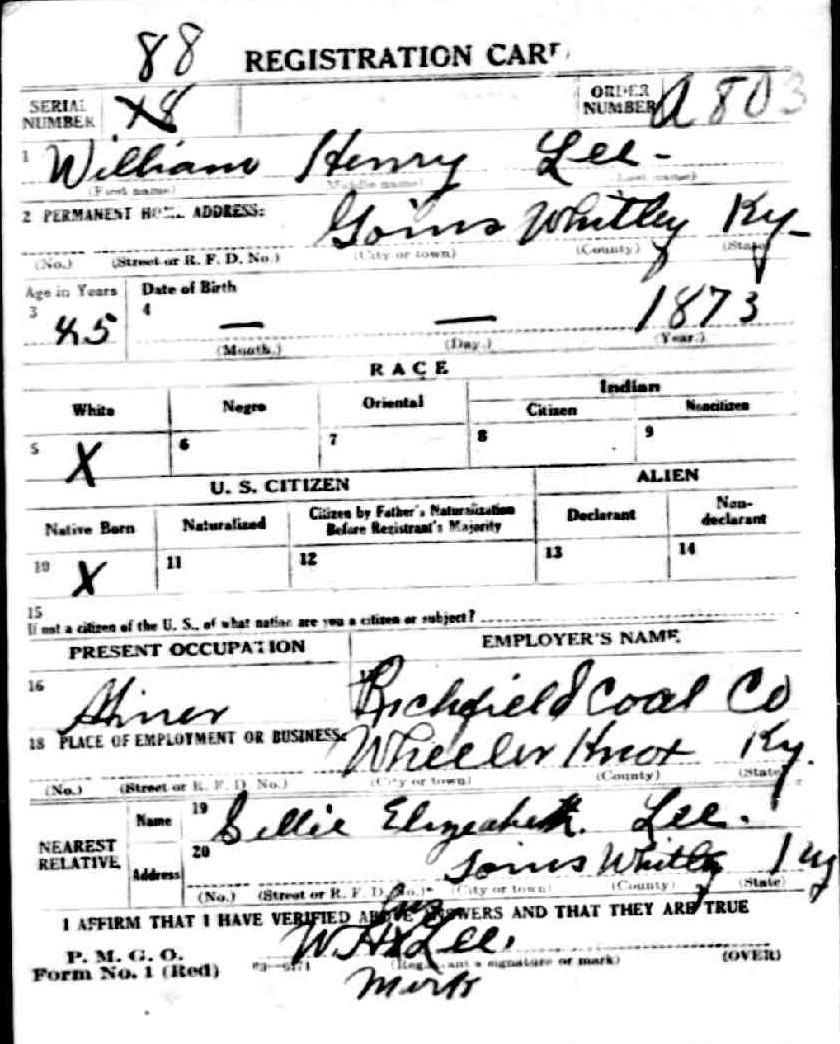 88 REGISTRATION CARD
SERIAL NUMBER 78 ORDER NUMBER A 803
1 William Henry Lee-
(First name) (Middle name) (Last name)
2 PERMANENT HOME ADDRESS: Goins Whitley Ky-
(No.) (Street or R. F. D. No.) (City or town) (County) (State)
Age in Years Date of Birth
3 45 4 — — 1873
(Month.) (Day.) (Year.)
RACE
White Negro Oriental Indian
Citizen Noncitizen
5 X 6 7 8 9
U. S. CITIZEN ALIEN
Native Born Naturalized Citizen by Father's Naturalization Before Registrant's Majority Declarant Non-declarant
10 X 11 12 13 14
15
If not a citizen of the U. S., of what nation are you a citizen or subject?
PRESENT OCCUPATION EMPLOYER'S NAME
16 Miner Richfield Coal Co
18 PLACE OF EMPLOYMENT OR BUSINESS: Wheeler Knox Ky.
(No.) (Street or R. F. D. No.) (City or town) (County) (State)
NEAREST RELATIVE Name 19 Lee.
Address 20 Goins Whitley Ky
(No.) (Street or R. F. D. No.) (City or town) (County) (State)
I AFFIRM THAT I HAVE VERIFIED ABOVE ANSWERS AND THAT THEY ARE TRUE
his
P. M. G. O. W. H. X Lee.
Form No. 1 (Red) (Registrant's signature or mark) (OVER)
mark